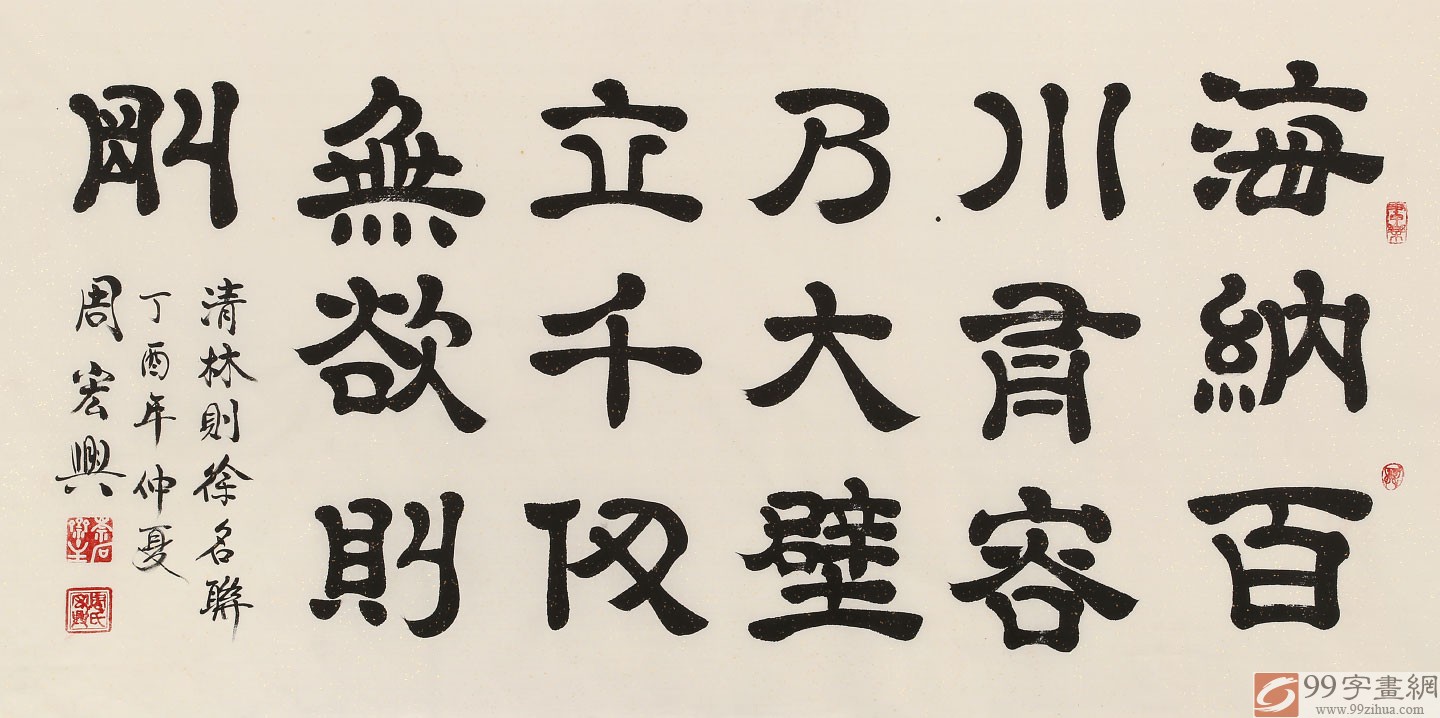 海納百
川有容
乃大壁
立千仞
無欲則
剛
清林則徐名聯
丁酉年仲夏
周宏興
99字畫網
www.99zihua.com